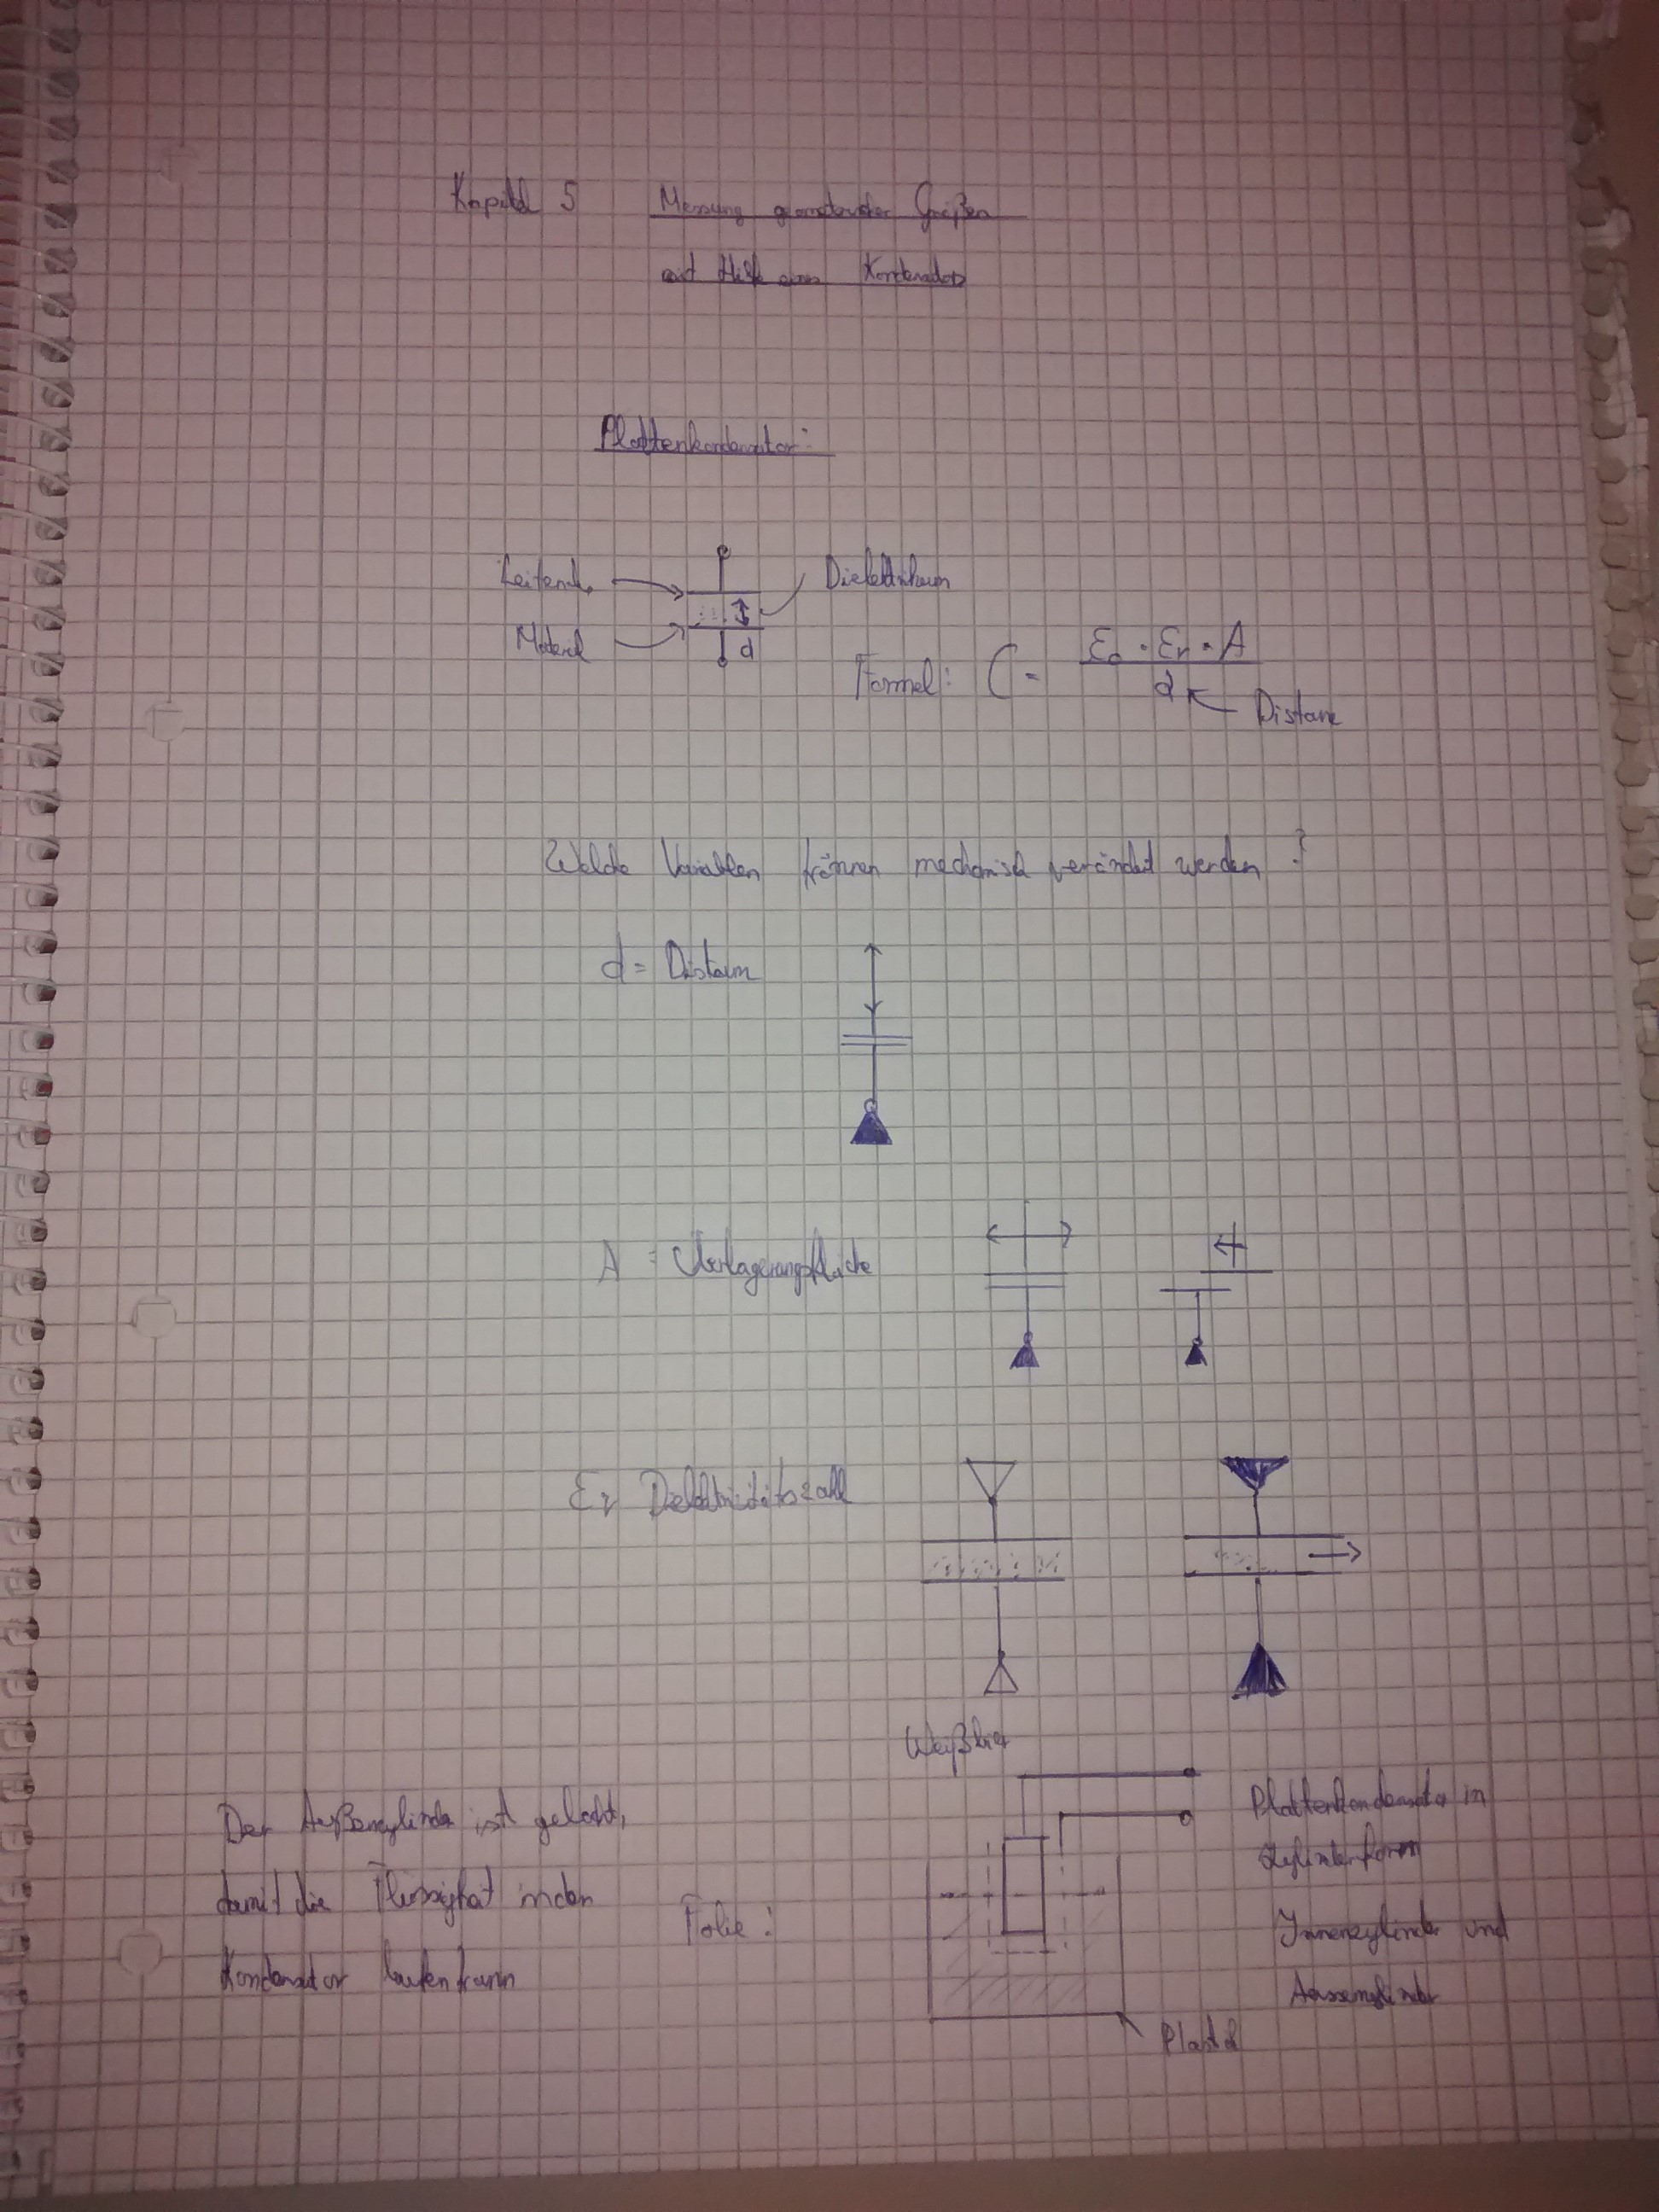 Kapitel 5 Messung geometrischer Größen
mit Hilfe eines Kondensators
Plattenkondensator:
Leitendes Dielektrikum
Material d
Formel: C = ε₀ · εr · A / d Distanz
Welche Variablen können mechanisch verändert werden ?
d = Distanz
A = Überlagerungsfläche
εr Dielektrizitätszahl
Weißbier
Der Außenzylinder ist gelocht,
damit die Flüssigkeit in den
Kondensator laufen kann
Folie:
Plattenkondensator in
Zylinderform
Innenzylinder und
Aussenzylinder
Plastik